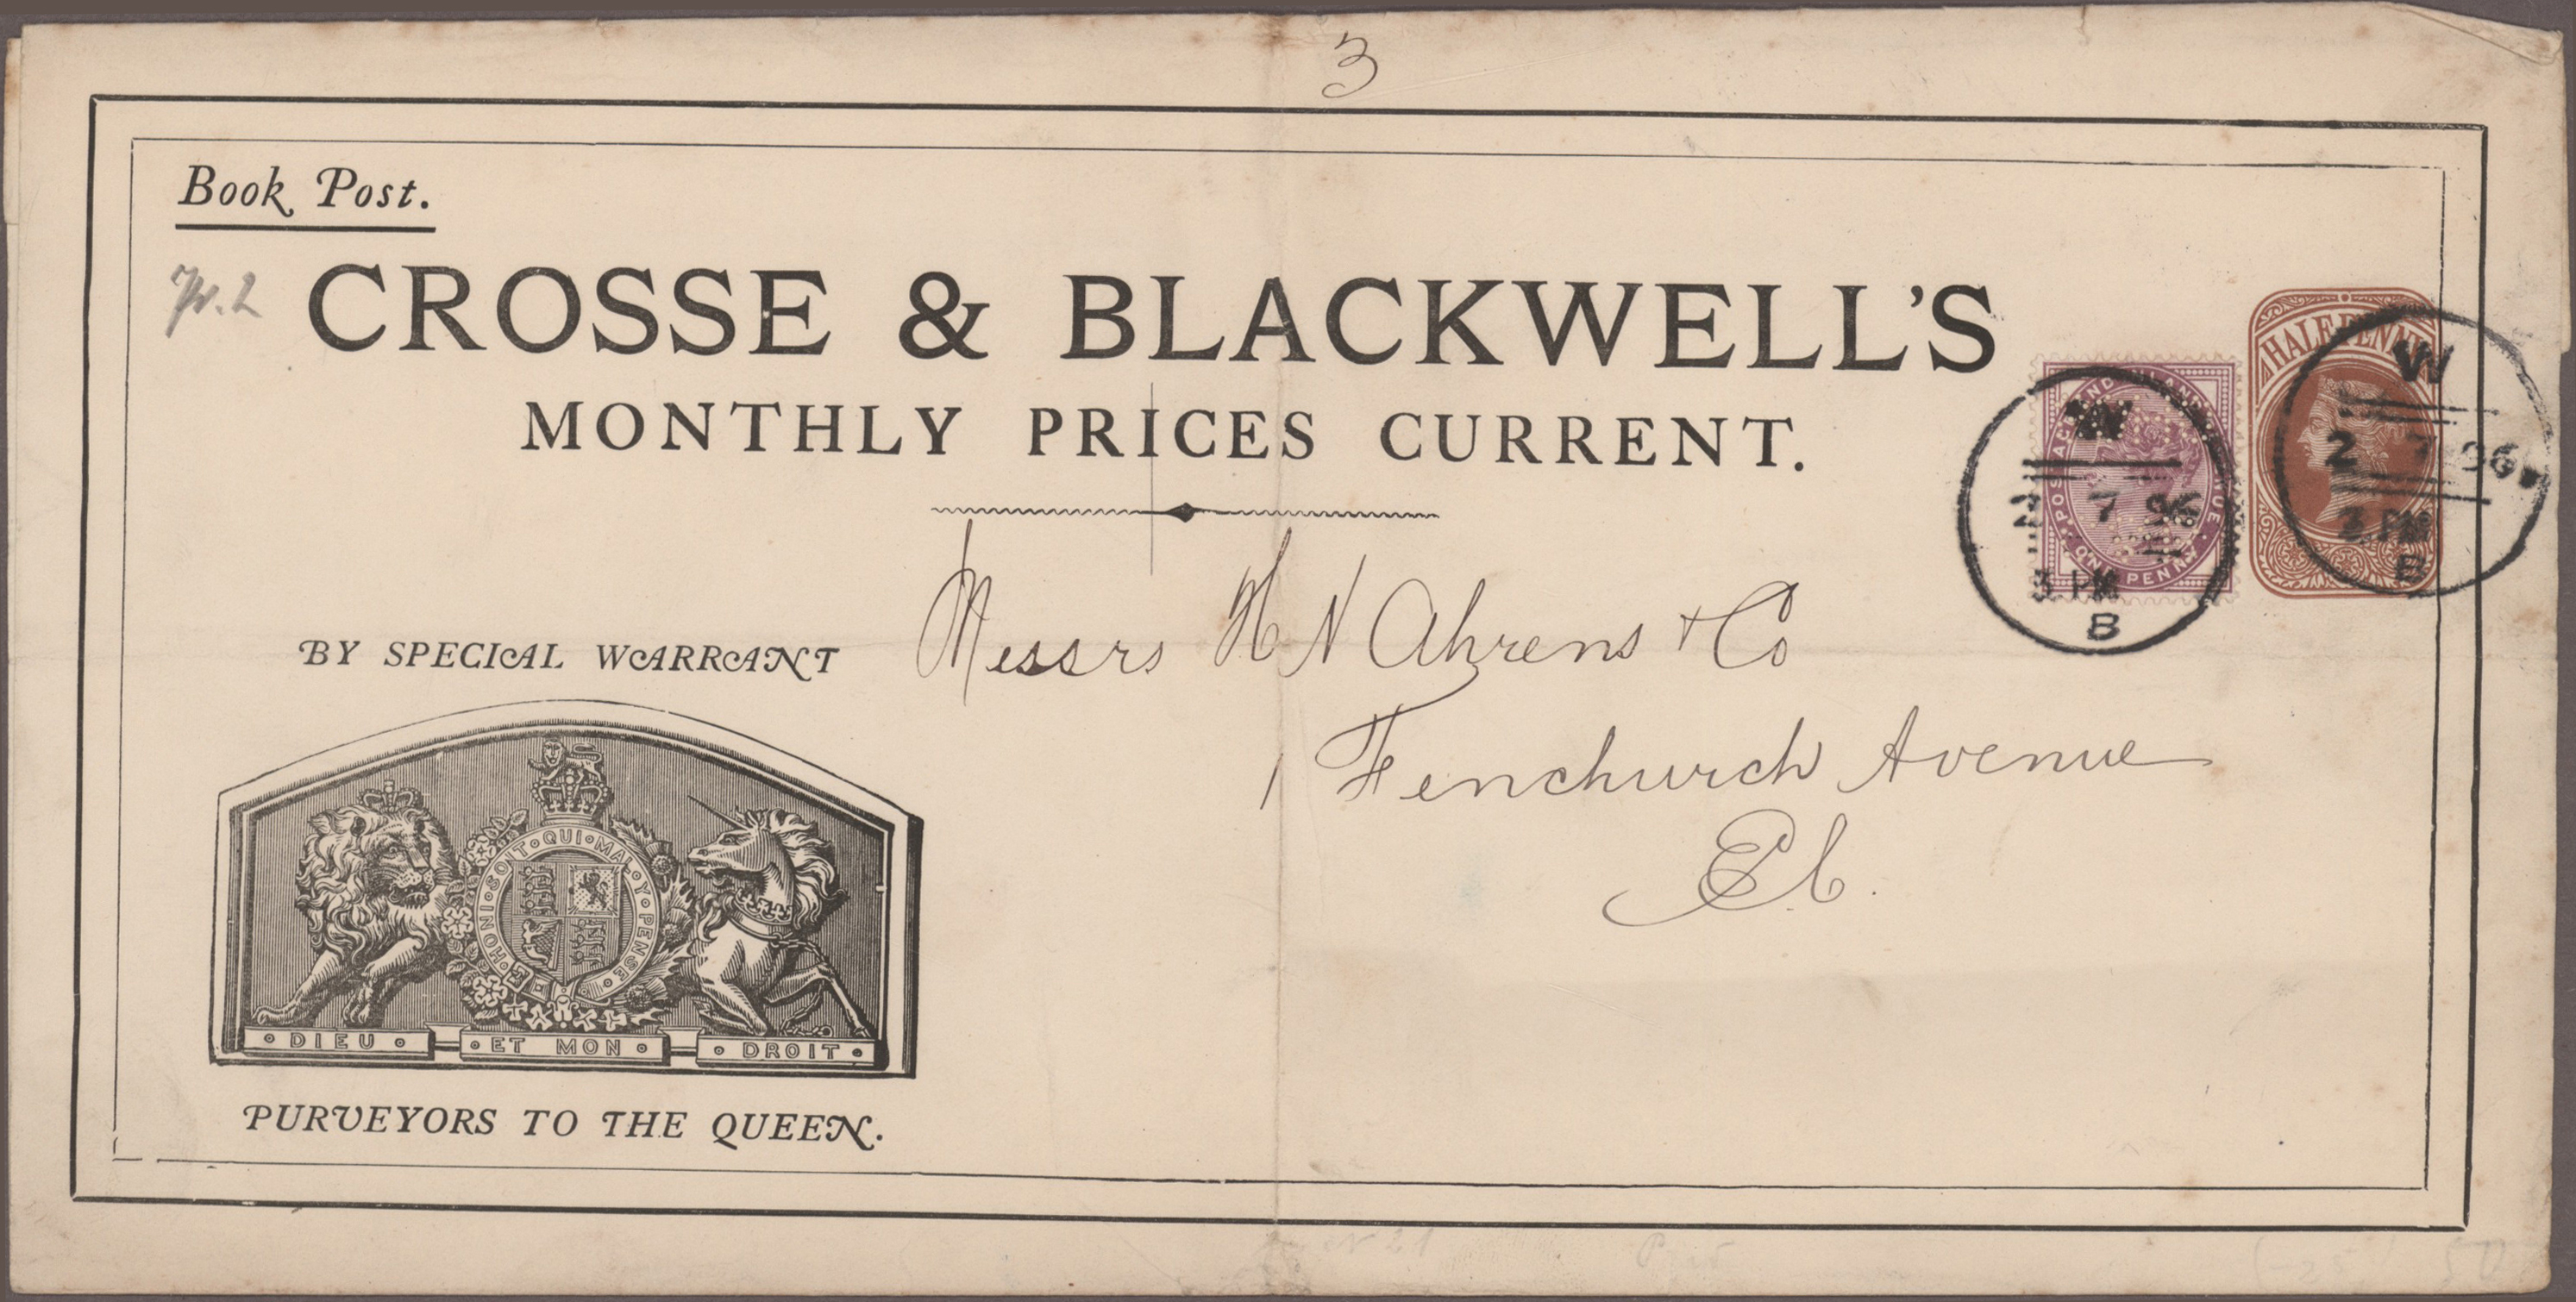 3
Book Post.
CROSSE & BLACKWELL'S
MONTHLY PRICES CURRENT.
HALFPENNY
POSTAGE AND INLAND REVENUE
ONE PENNY
W
2 7 96
3 PM
B
W
2 7 96
3 PM
B
Messrs H N Ahrens & Co
1 Fenchurch Avenue
E C.
BY SPECIAL WARRANT
HONI · SOIT · QUI · MAL · Y · PENSE
DIEU ET MON DROIT
PURVEYORS TO THE QUEEN.